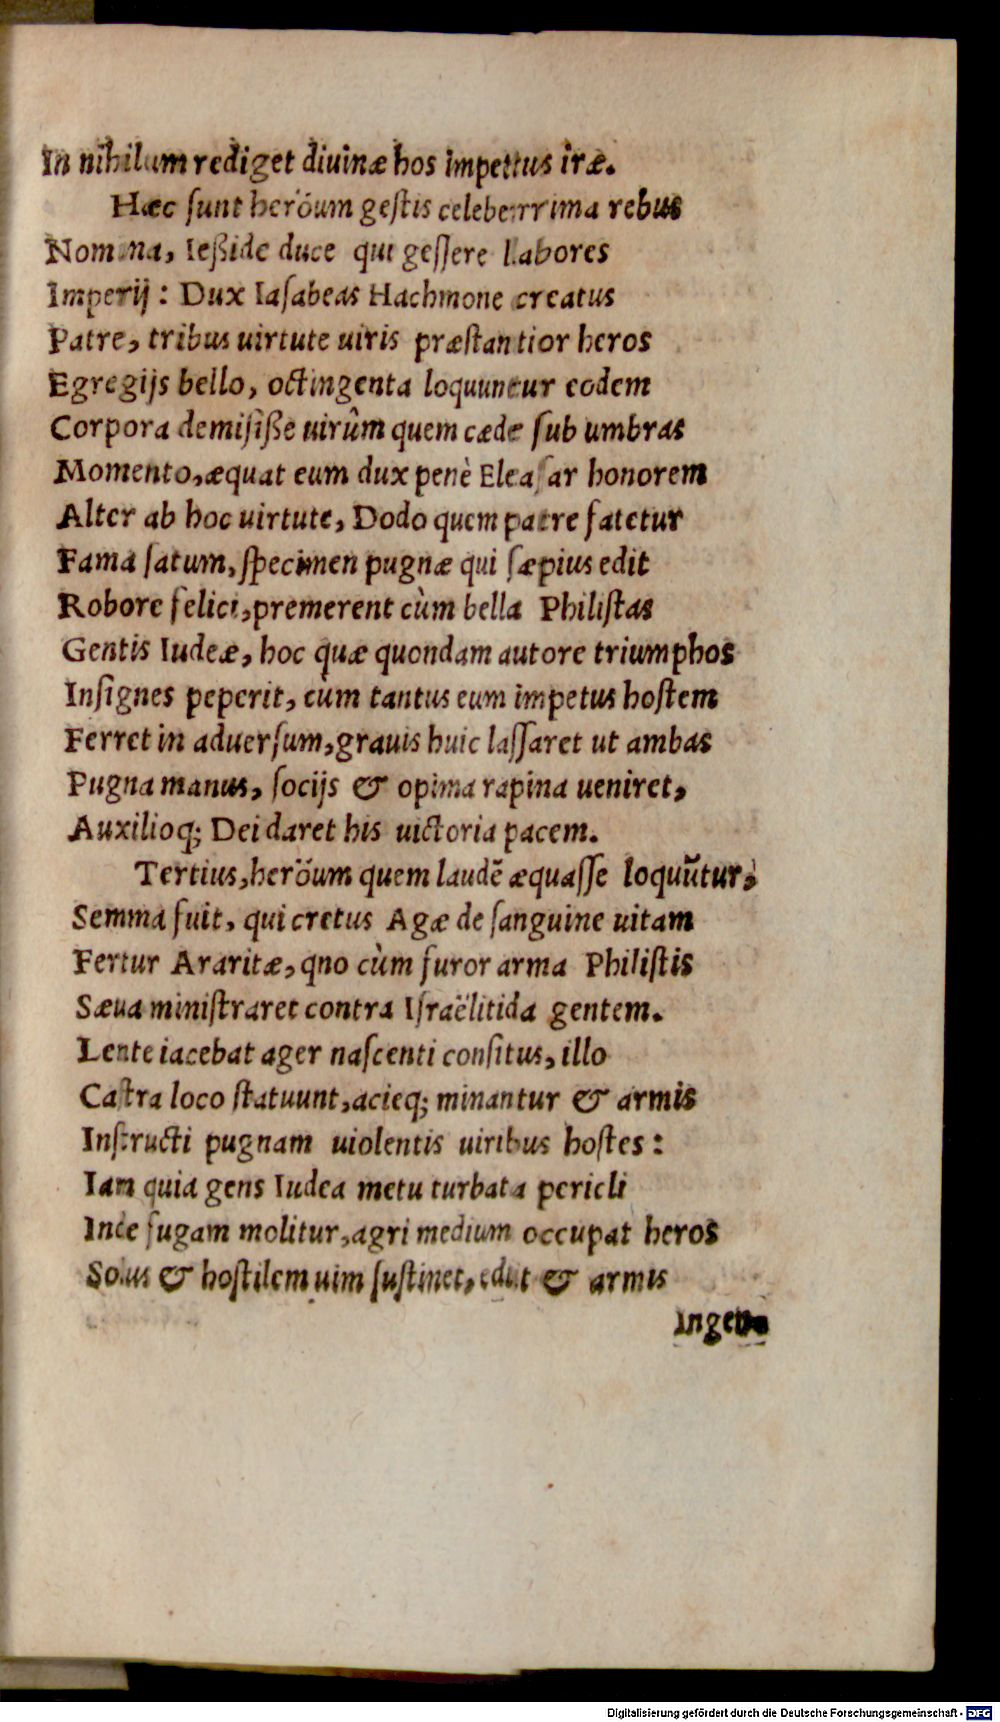 In nihilum rediget diuinæ hos impettus iræ.
Hæc sunt heröum gestis celeberrima rebus
Nomina, Ießide duce qui gessere labores
Imperij: Dux Iasabeas Hachmone creatus
Patre, tribus uirtute uiris præstantior heros
Egregijs bello, octingenta loquuntur eodem
Corpora demisiße uirûm quem cæde sub umbras
Momento, æquat eum dux penè Eleasar honorem
Alter ab hoc uirtute, Dodo quem patre fatetur
Fama satum, specimen pugnæ qui sæpius edit
Robore felici, premerent cùm bella Philistas
Gentis Iudeæ, hoc quæ quondam autore triumphos
Insignes peperit, cum tantus eum impetus hostem
Ferret in aduersum, grauis huic lassaret ut ambas
Pugna manus, socijs & opima rapina ueniret,
Auxilioq; Dei daret his uictoria pacem.
Tertius, heröum quem laudē æquasse loquūtur,
Semma fuit, qui cretus Agæ de sanguine uitam
Fertur Araritæ, qno cùm furor arma Philistis
Sæua ministraret contra Israëlitida gentem.
Lente iacebat ager nascenti consitus, illo
Castra loco statuunt, acieq; minantur & armis
Instructi pugnam uiolentis uiribus hostes:
Iam quia gens Iudea metu turbata pericli
Ince fugam molitur, agri medium occupat heros
Solus & hostilem uim sustinet, edit & armis
Ingen
Digitalisierung gefördert durch die Deutsche Forschungsgemeinschaft - DFG